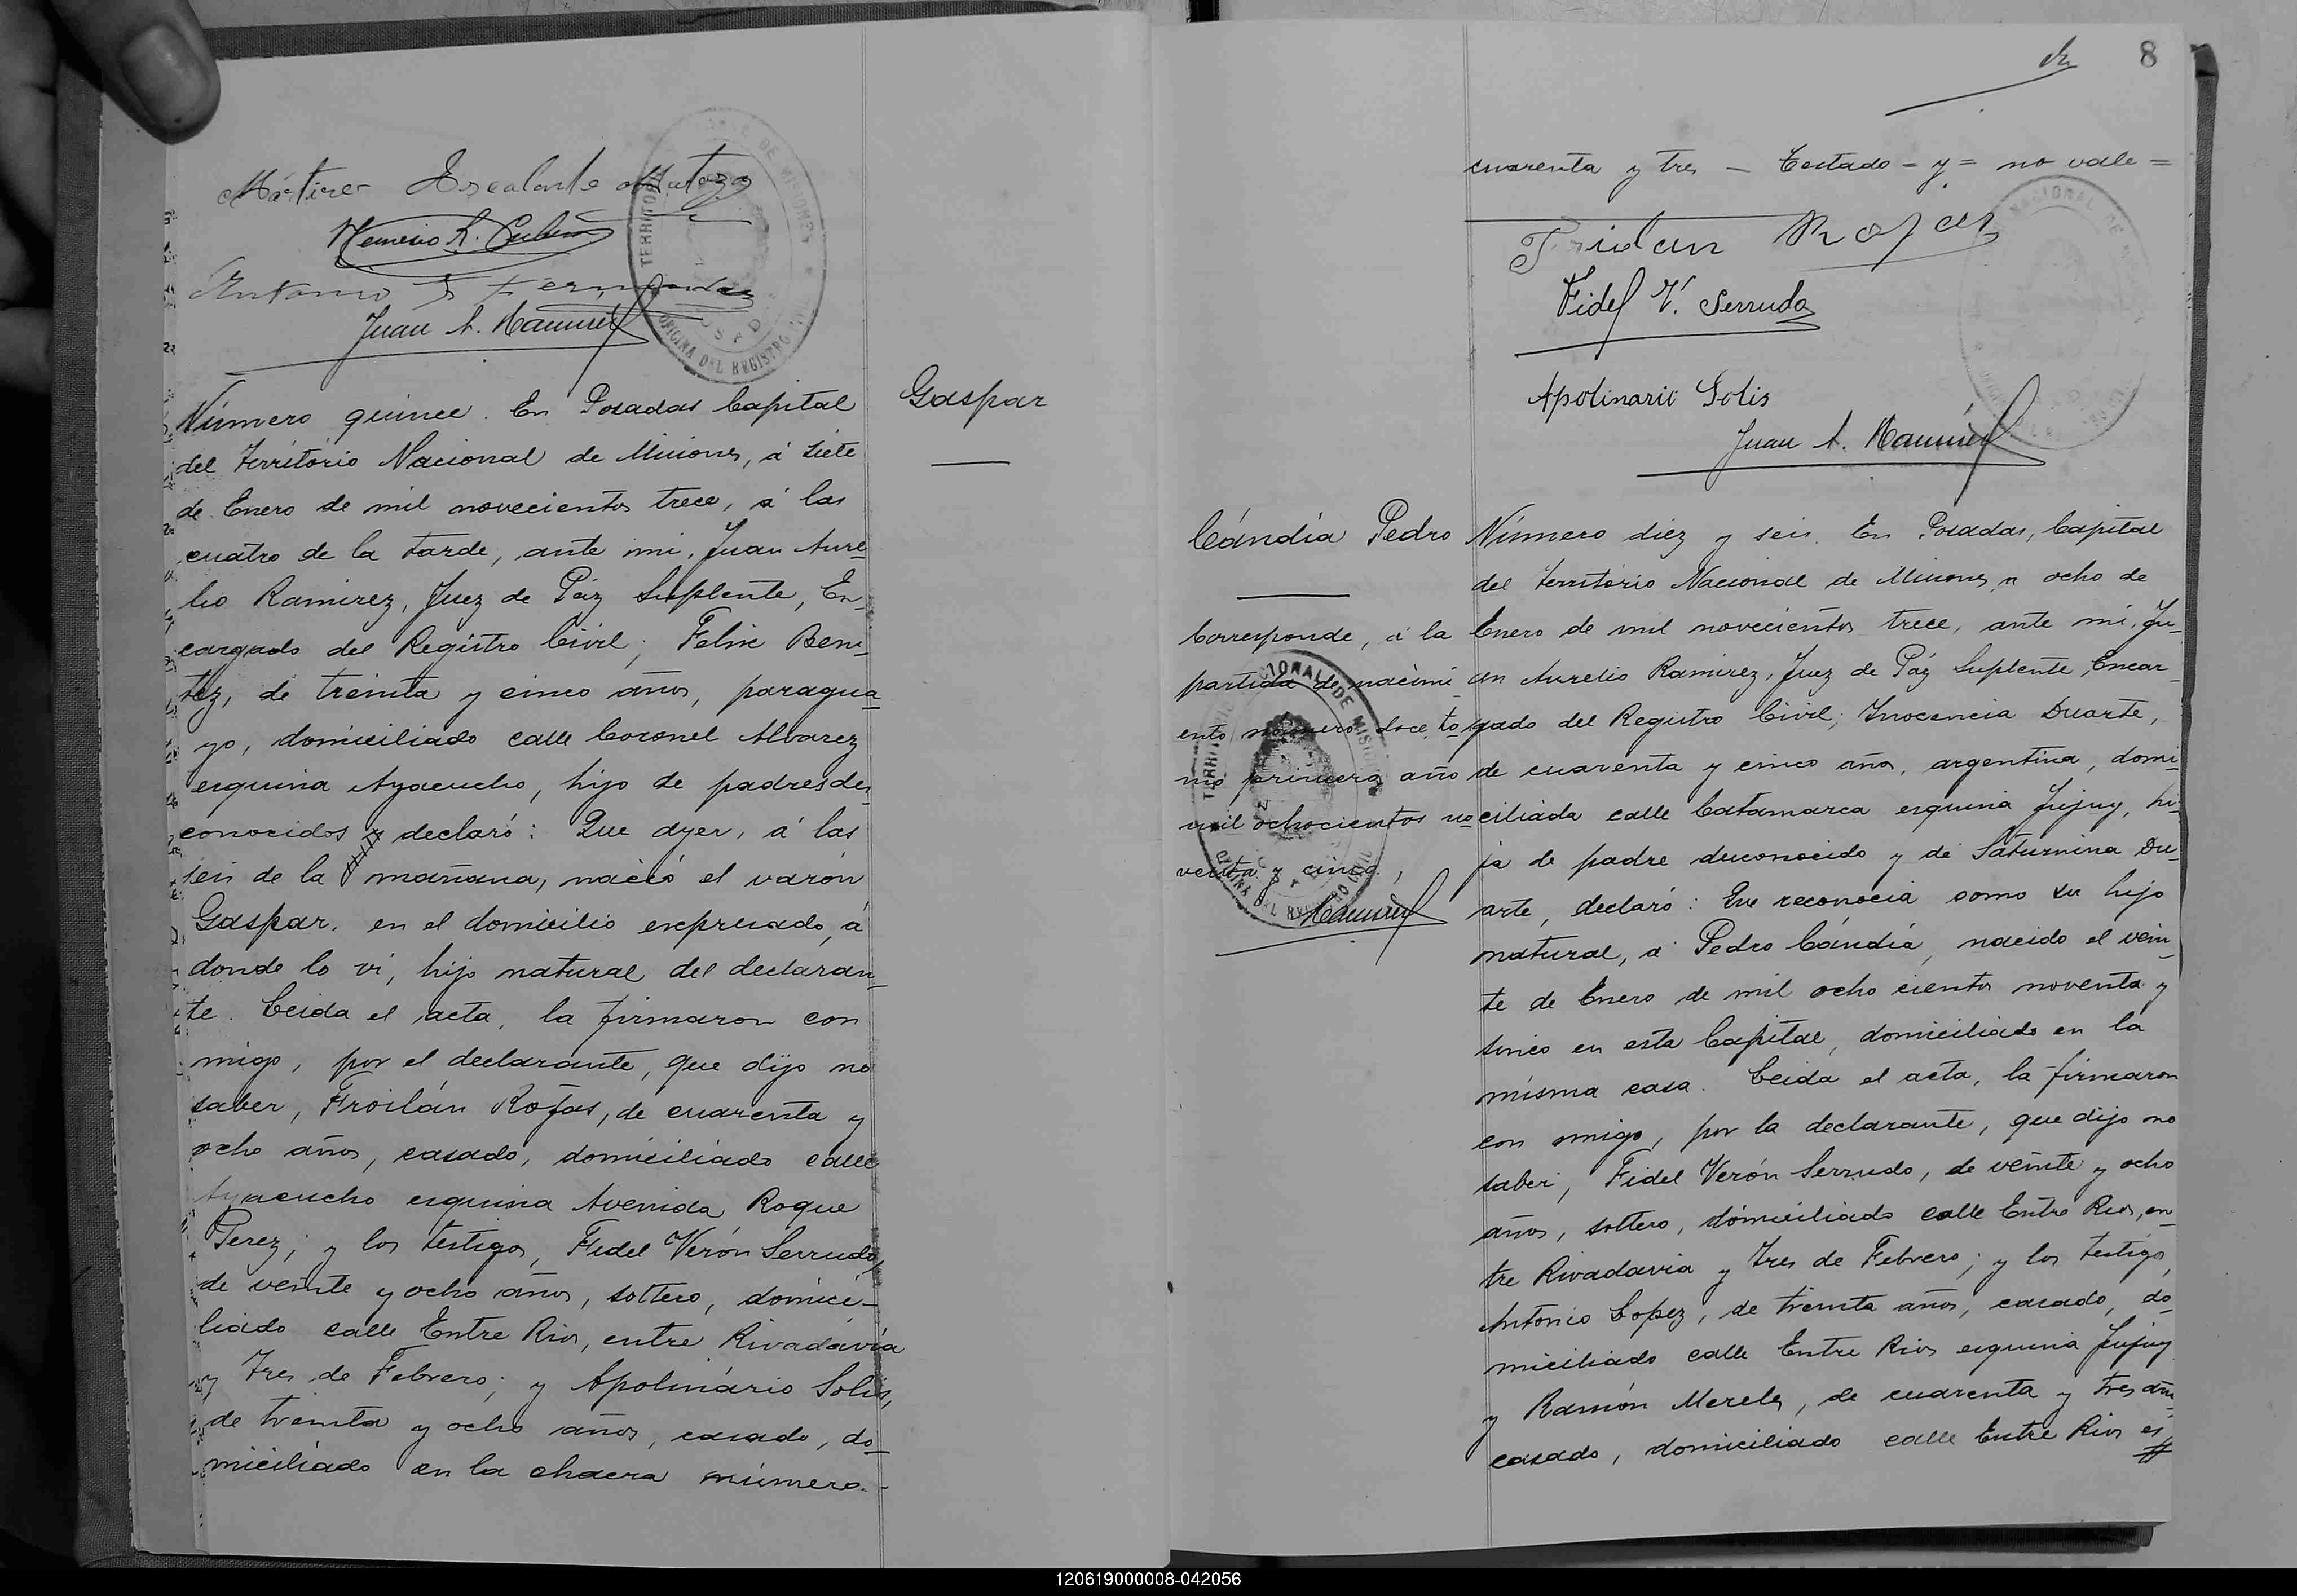 Mártires Escalante
Nemesio R.
Antonio Fernandez
Juan A. Ramirez
TERRITORIO NACIONAL DE MISIONES
OFICINA DEL REGISTRO CIVIL
Gaspar
Número quince. En Posadas Capital
del Territorio Nacional de Misiones, á siete
de Enero de mil novecientos trece, á las
cuatro de la tarde, ante mi, Juan Aure
lio Ramirez, Juez de Páz Suplente, En
cargado del Registro Civil; Felix Beni
tez, de treinta y cinco años, paragua
yo, domiciliado calle Coronel Alvarez
esquina Ayacucho, hijo de padres des
conocidos y declaró: Que ayer, á las
seis de la mañana, nació el varón
Gaspar, en el domicilio expresado, á
donde lo vi, hijo natural del declaran
te. Leida el acta, la firmaron con
migo, por el declarante, que dijo no
saber, Froilán Rojas, de cuarenta y
ocho años, casado, domiciliado calle
Ayacucho esquina Avenida Roque
Perez; y los testigos, Fidel Verón Serrudo,
de veinte y ocho años, soltero, domici-
liado calle Entre Rios, entre Rivadávia
y Tres de Febrero; y Apolinário Solis,
de treinta y ocho años, casado, do
miciliado en la chacra número
8
cuarenta y tres — Testado - y = no vale =
Rojas
Fidel V. Serrudo
Apolinario Solis
Juan A. Ramirez
Cándia Pedro
Corresponde, á la
partida de nacimi
ento número doce, to
mo primero, año
mil ochocientos no
venta y cinco,
Ramirez
Número diez y seis. En Posadas, Capital
del Territorio Nacional de Misiones, a ocho de
Enero de mil novecientos trece, ante mi, Ju-
an Aurelio Ramirez, Juez de Páz Suplente, Encar
gado del Registro Civil; Inocencia Duarte,
de cuarenta y cinco años, argentina, domi
ciliada calle Catamarca esquina Jujuy, hi
ja de padre desconocido y de Saturnina Du
arte, declaró: Que reconocia como su hijo
natural, á Pedro Cándia, nacido el vein
te de Enero de mil ocho cientos noventa y
sinco en esta Capital, domiciliado en la
misma casa. Leida el acta, la firmaron
con migo, por la declarante, que dijo no
saber, Fidel Verón Serrudo, de veinte y ocho
años, soltero, domiciliado calle Entre Rios, en
tre Rivadavia y Tres de Febrero; y los testigos,
Antonio Lopez, de treinta años, casado, do
miciliado calle Entre Rios esquina Jujuy
y Ramón Mereles, de cuarenta y tres años
casado, domiciliado calle Entre Rios es
120619000008-042056